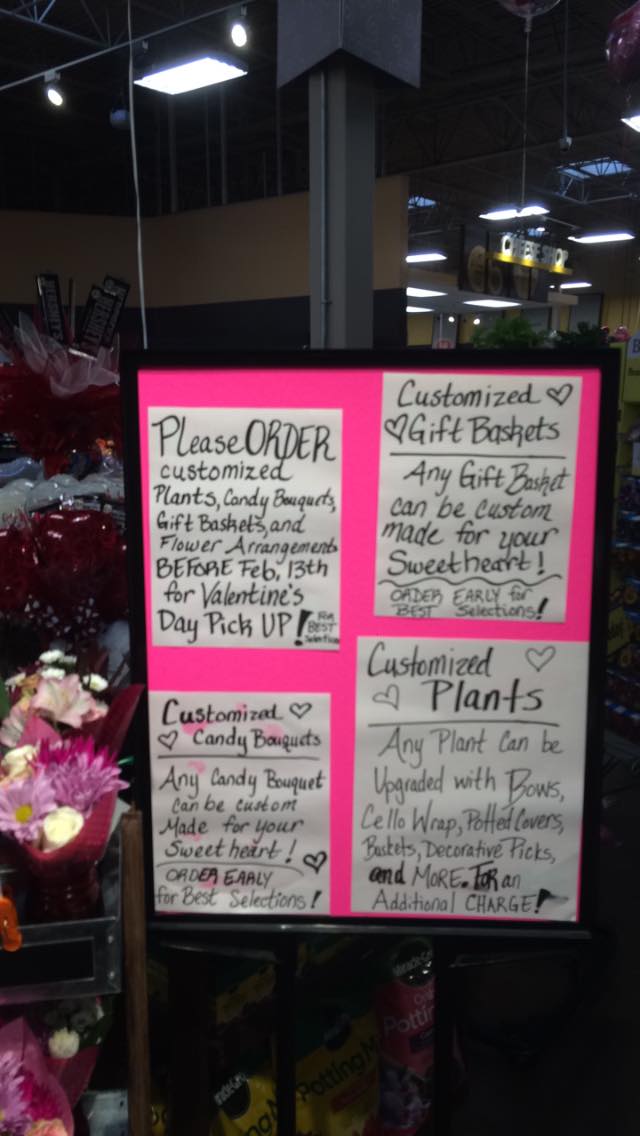 HERSHEY'S
CHEESE SHOP
Please ORDER
customized
Plants, Candy Bouquets,
Gift Baskets, and
Flower Arrangements
BEFORE Feb, 13th
for Valentine's
Day Pick UP!
For
BEST
Selection
Customized
Gift Baskets
Any Gift Basket
can be custom
made for your
Sweetheart!
ORDER EARLY for
BEST Selections!
Customized
Candy Bouquets
Any Candy Bouquet
can be custom
Made for your
Sweet heart!
ORDER EARLY
for Best Selections!
Customized
Plants
Any Plant Can be
Upgraded with Bows,
Cello Wrap, Potted Covers,
Baskets, Decorative Picks,
and MORE. FOR an
Additional CHARGE!
Miracle-Gro
Potting
Potting M
Miracle-Gro